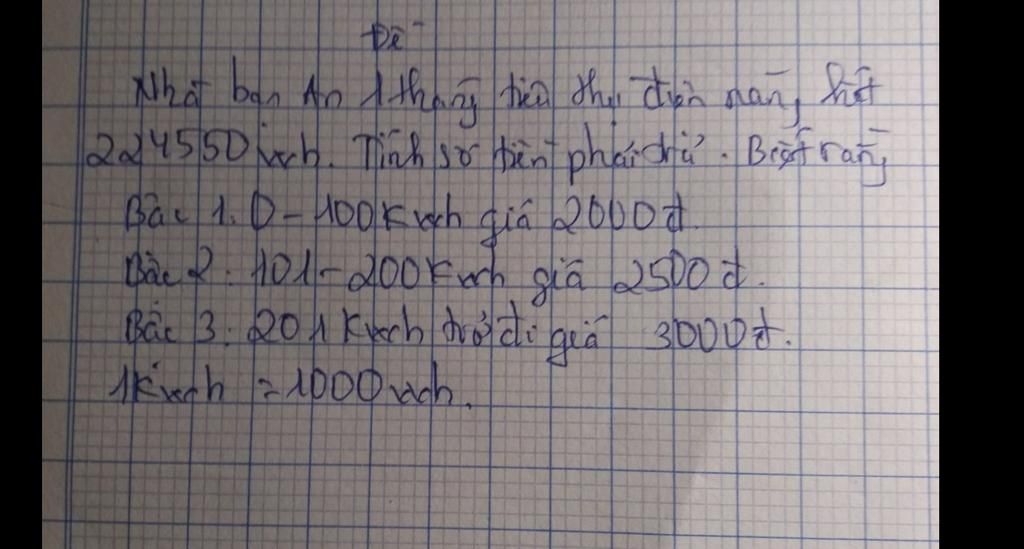 Đề
Nhà bạn An 1 tháng tiêu thụ điện năng hết
224550 wh. Tính số tiền phải trả. Biết rằng
Bậc 1: 0-100Kwh giá 2000đ.
Bậc 2: 101-200Kwh giá 2500đ.
Bậc 3: 201Kwh trở đi giá 3000đ.
1Kwh = 1000wh.